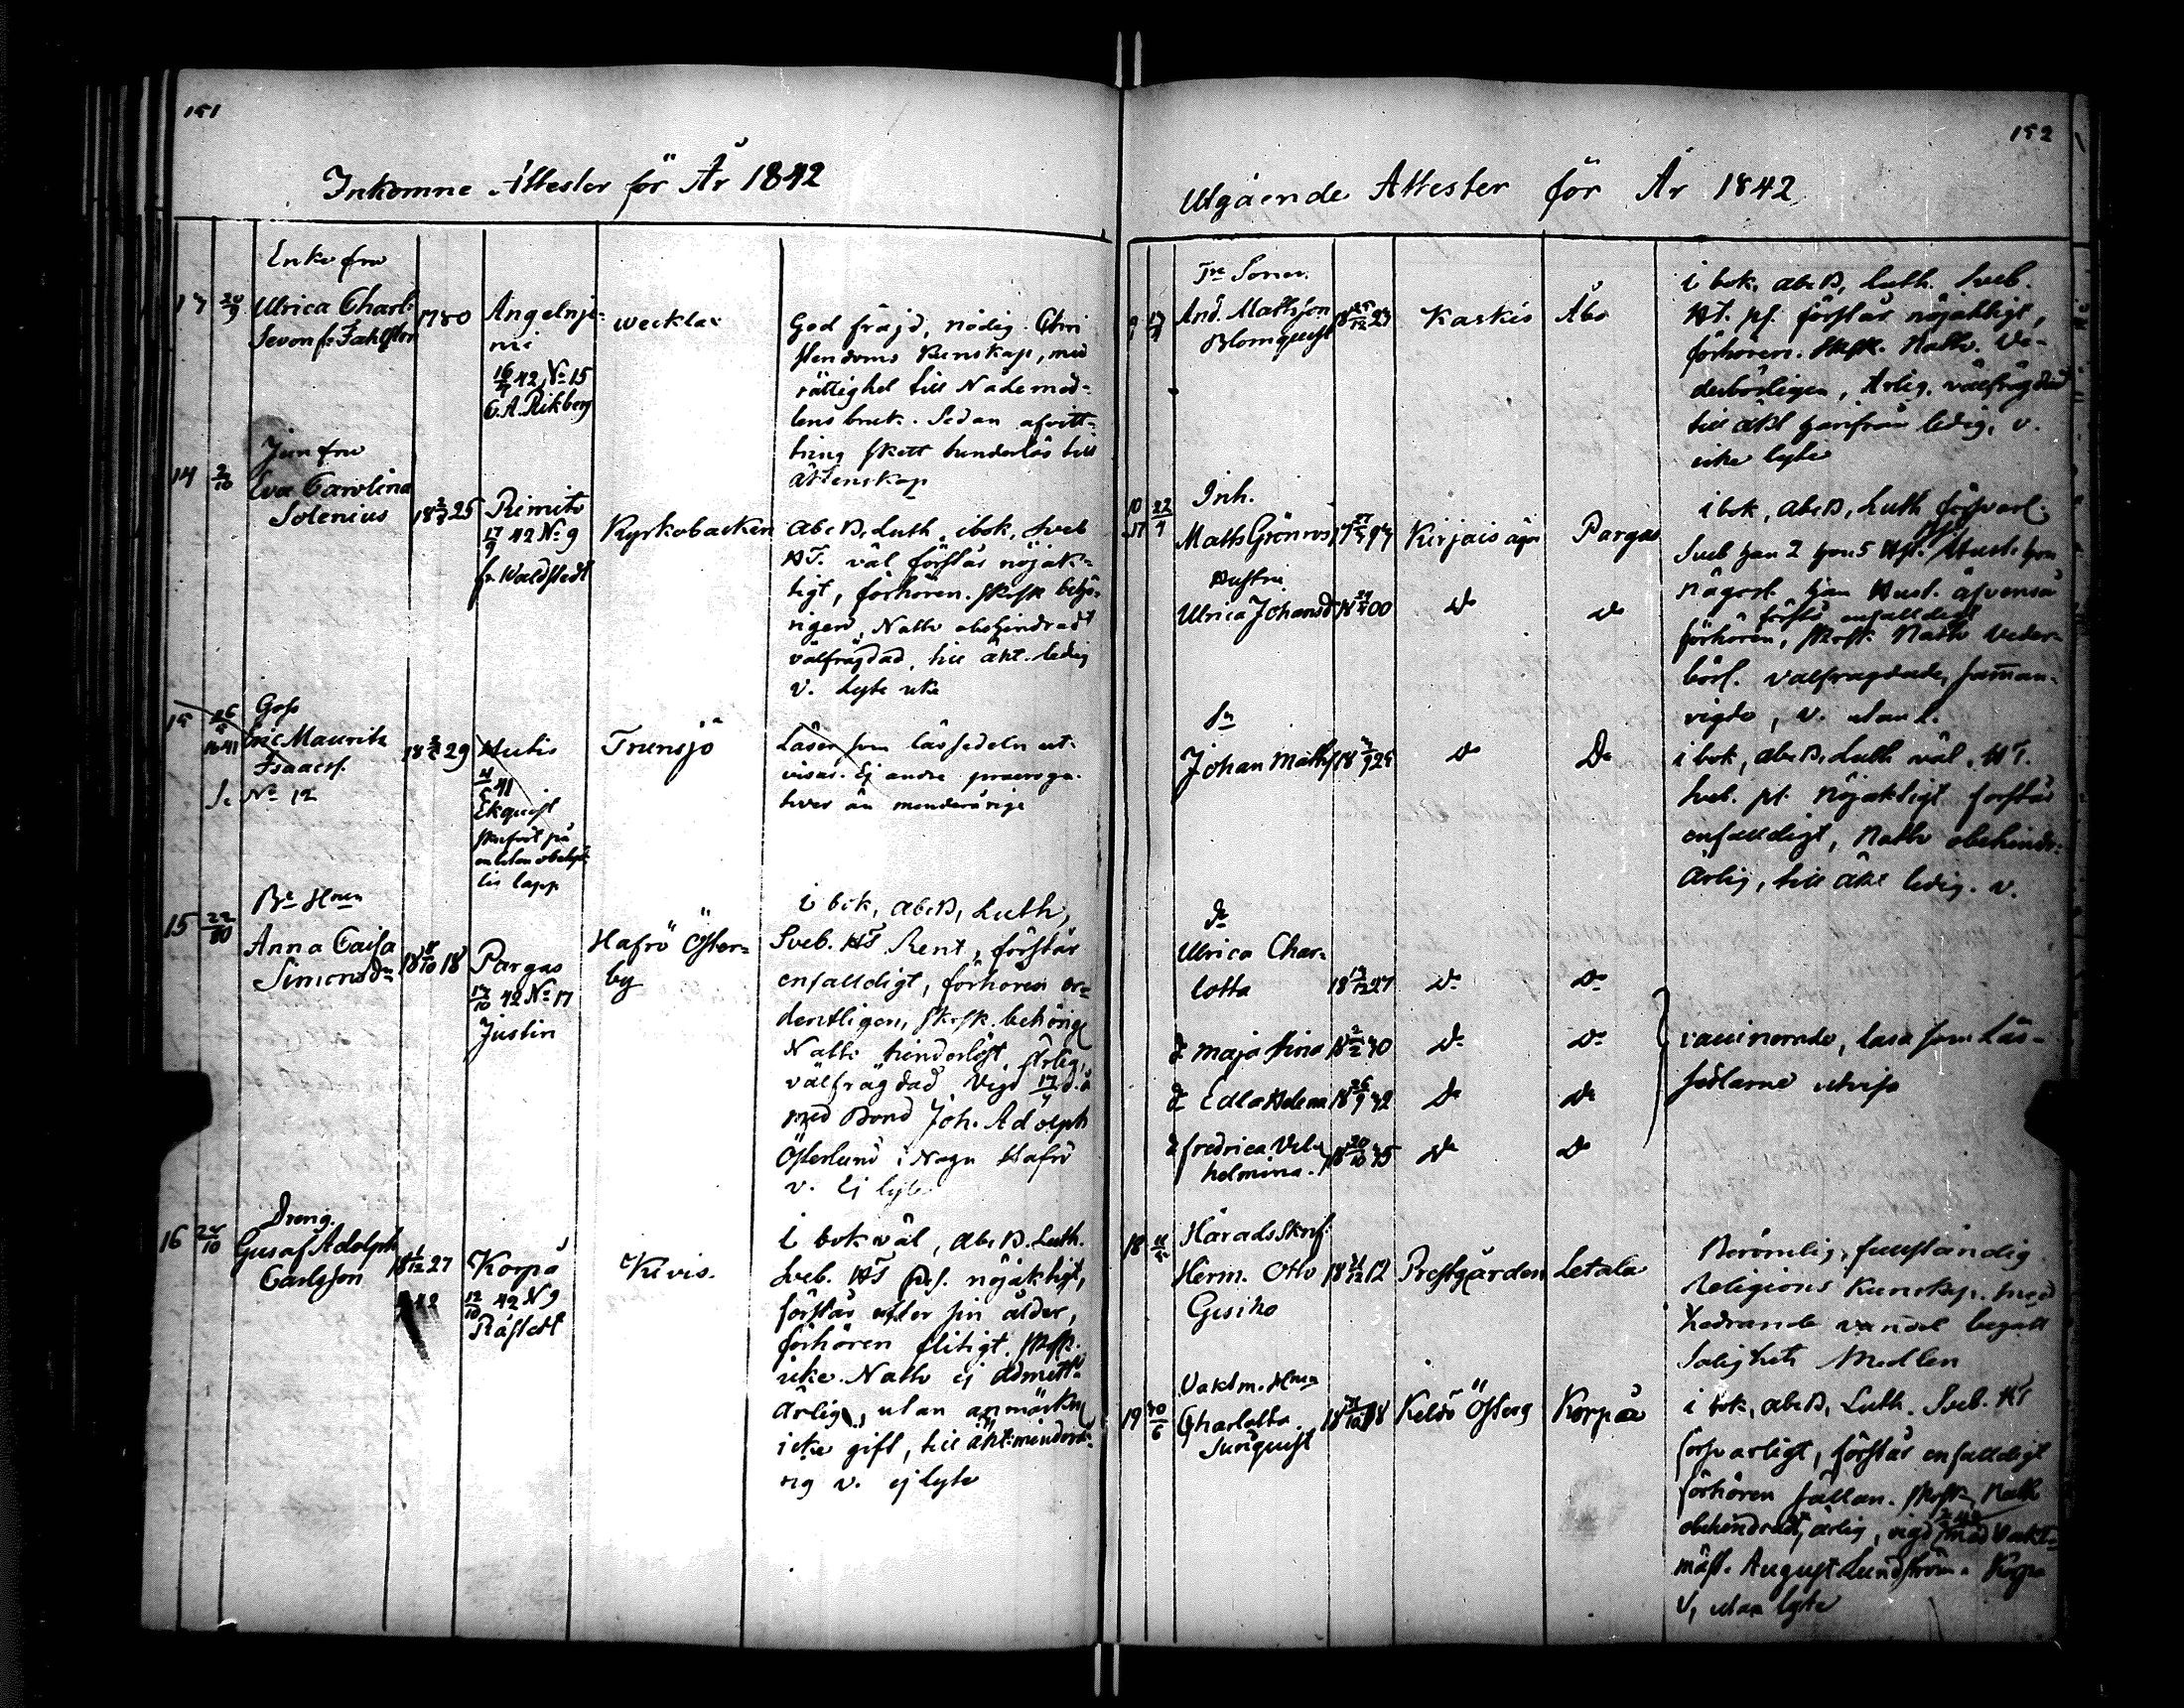 151
Inkomne Attester för År 1842
Enkefru
Ulrica Charl.
Sevon f. Fahlsten
1780
Angelnje-
mi
16/9 42, No 15
C. A. Rikberg
Weckla
God fräjd, nödig Chri
stendoms kunskap, med
rättighet till Nademed-
lens bruk. Sedan afvitt-
ring skett hinderlös till
äktenskap
14 2/10
Jumfru
Eva Carolina
Solenius
25
Rimito
17/9 42 No 9
fr Waldstedt
Kyrkobacken
Abc B, Luth. i bok, Sveb
HT. väl förstår nöjak-
tigt, förhören. skrsk behö-
rigen, Nattv obehindradt
välfrägdad, till äkt. ledig
v. Lyte icke
15
Goss
Eric Maurits
Isaacss.
S. No 12
29
Hutis
41
Ekquist
skrifvit på
lapp
Trunsjö
Läser som läsesedeln ut-
visar. Ej andra præroga-
tiver än minderårige
15 22/10
Be Hnn
Anna Caisa
Simonsdr
18
Pargas
17/10 42 No 17
Justin
Hafrö Öster-
by
i bok, Abc B, Luth,
Sveb. HT Rent, förstår
enfalldigt, förhören or-
dentligen, skrsk. behörig
Nattv hinderlöst, Ärlig,
välfrägdad Vigd 17/9 d.å
med Bond Joh. Adolph
Österlund i Nagu Hafrö
v. Ej lyte
16 24/10
Dreng.
Gustaf Adolph
Carlsson
18 1/12 27
Korpå
12/10 42 N 9
Råstedt
Kivis.
i bok väl, Abc B. Luth.
Sveb. HT ps. nöjaktigt,
förstår efter sin ålder,
förhören flitigt. skrsk.
icke. Nattv ej admitt.
Ärlig, utan anmärkn
icke gift, till äkt. minderå-
rig v. ej lyte
152
Utgående Attester för År 1842
Tre Söner.
And. Mathsson
Blomquist
Kaskis
Åbo
i bok, Abc B, Luth. Sveb.
HT. ps. förstår nöjaktigt,
förhören. skrsk. Nattv. Ve-
derbörligen, Ärlig, välfrägdad
till äkt härifrån ledig, v.
icke lyte
10
Inh.
Maths Grönroos
Kirjais ägor
Pargas
i bok, Abc B, Luth försvarl.
Sveb han 2 hon 5 Hst. Hust. hon
någorl. han Hust. äfvenså
förstå enfalldigt
förhören, skrsk. Nattv Veder-
börl. välfrägdade, samman-
vigde, v. utan l.
11
Hustru
Ulrica Johansdr
00
Do
Do
Sn
Johan Maths
Do
Do
i bok, Abc B, Luth väl, HT.
Sveb. ps. Nöjaktigt förstår
enfalldigt, Nattv obehindr.
Ärlig, till äkt ledig. v.
Dr
Ulrica Char-
lotta
27
Do
Do
D Maja Stina
Do
Do
vaccinerade, läsa som Läs-
sedlarne utvisa
D Edla Helena
Do
Do
D Fredrica Vil-
helmina.
Do
Do
18
Häradsskrif.
Herm. Otto
Gesiho
12
Prestgården
Letala
Berömlig, fullständig
Religions Kunskap. med
hedrande vandel begått
Salighets Medlen
19 30/6
Vaktm. Hnn
Charlotta
Sunquist
Keldö Österg
Korpo
i bok, Abc B, Luth. Sveb. HT
försvarligt, förstår enfalldigt
förhören sällan. skrsk, Natt
obehindradt, ärlig, vigd med Vakt-
mäst. August Lundström. Korpo
v, utan lyte